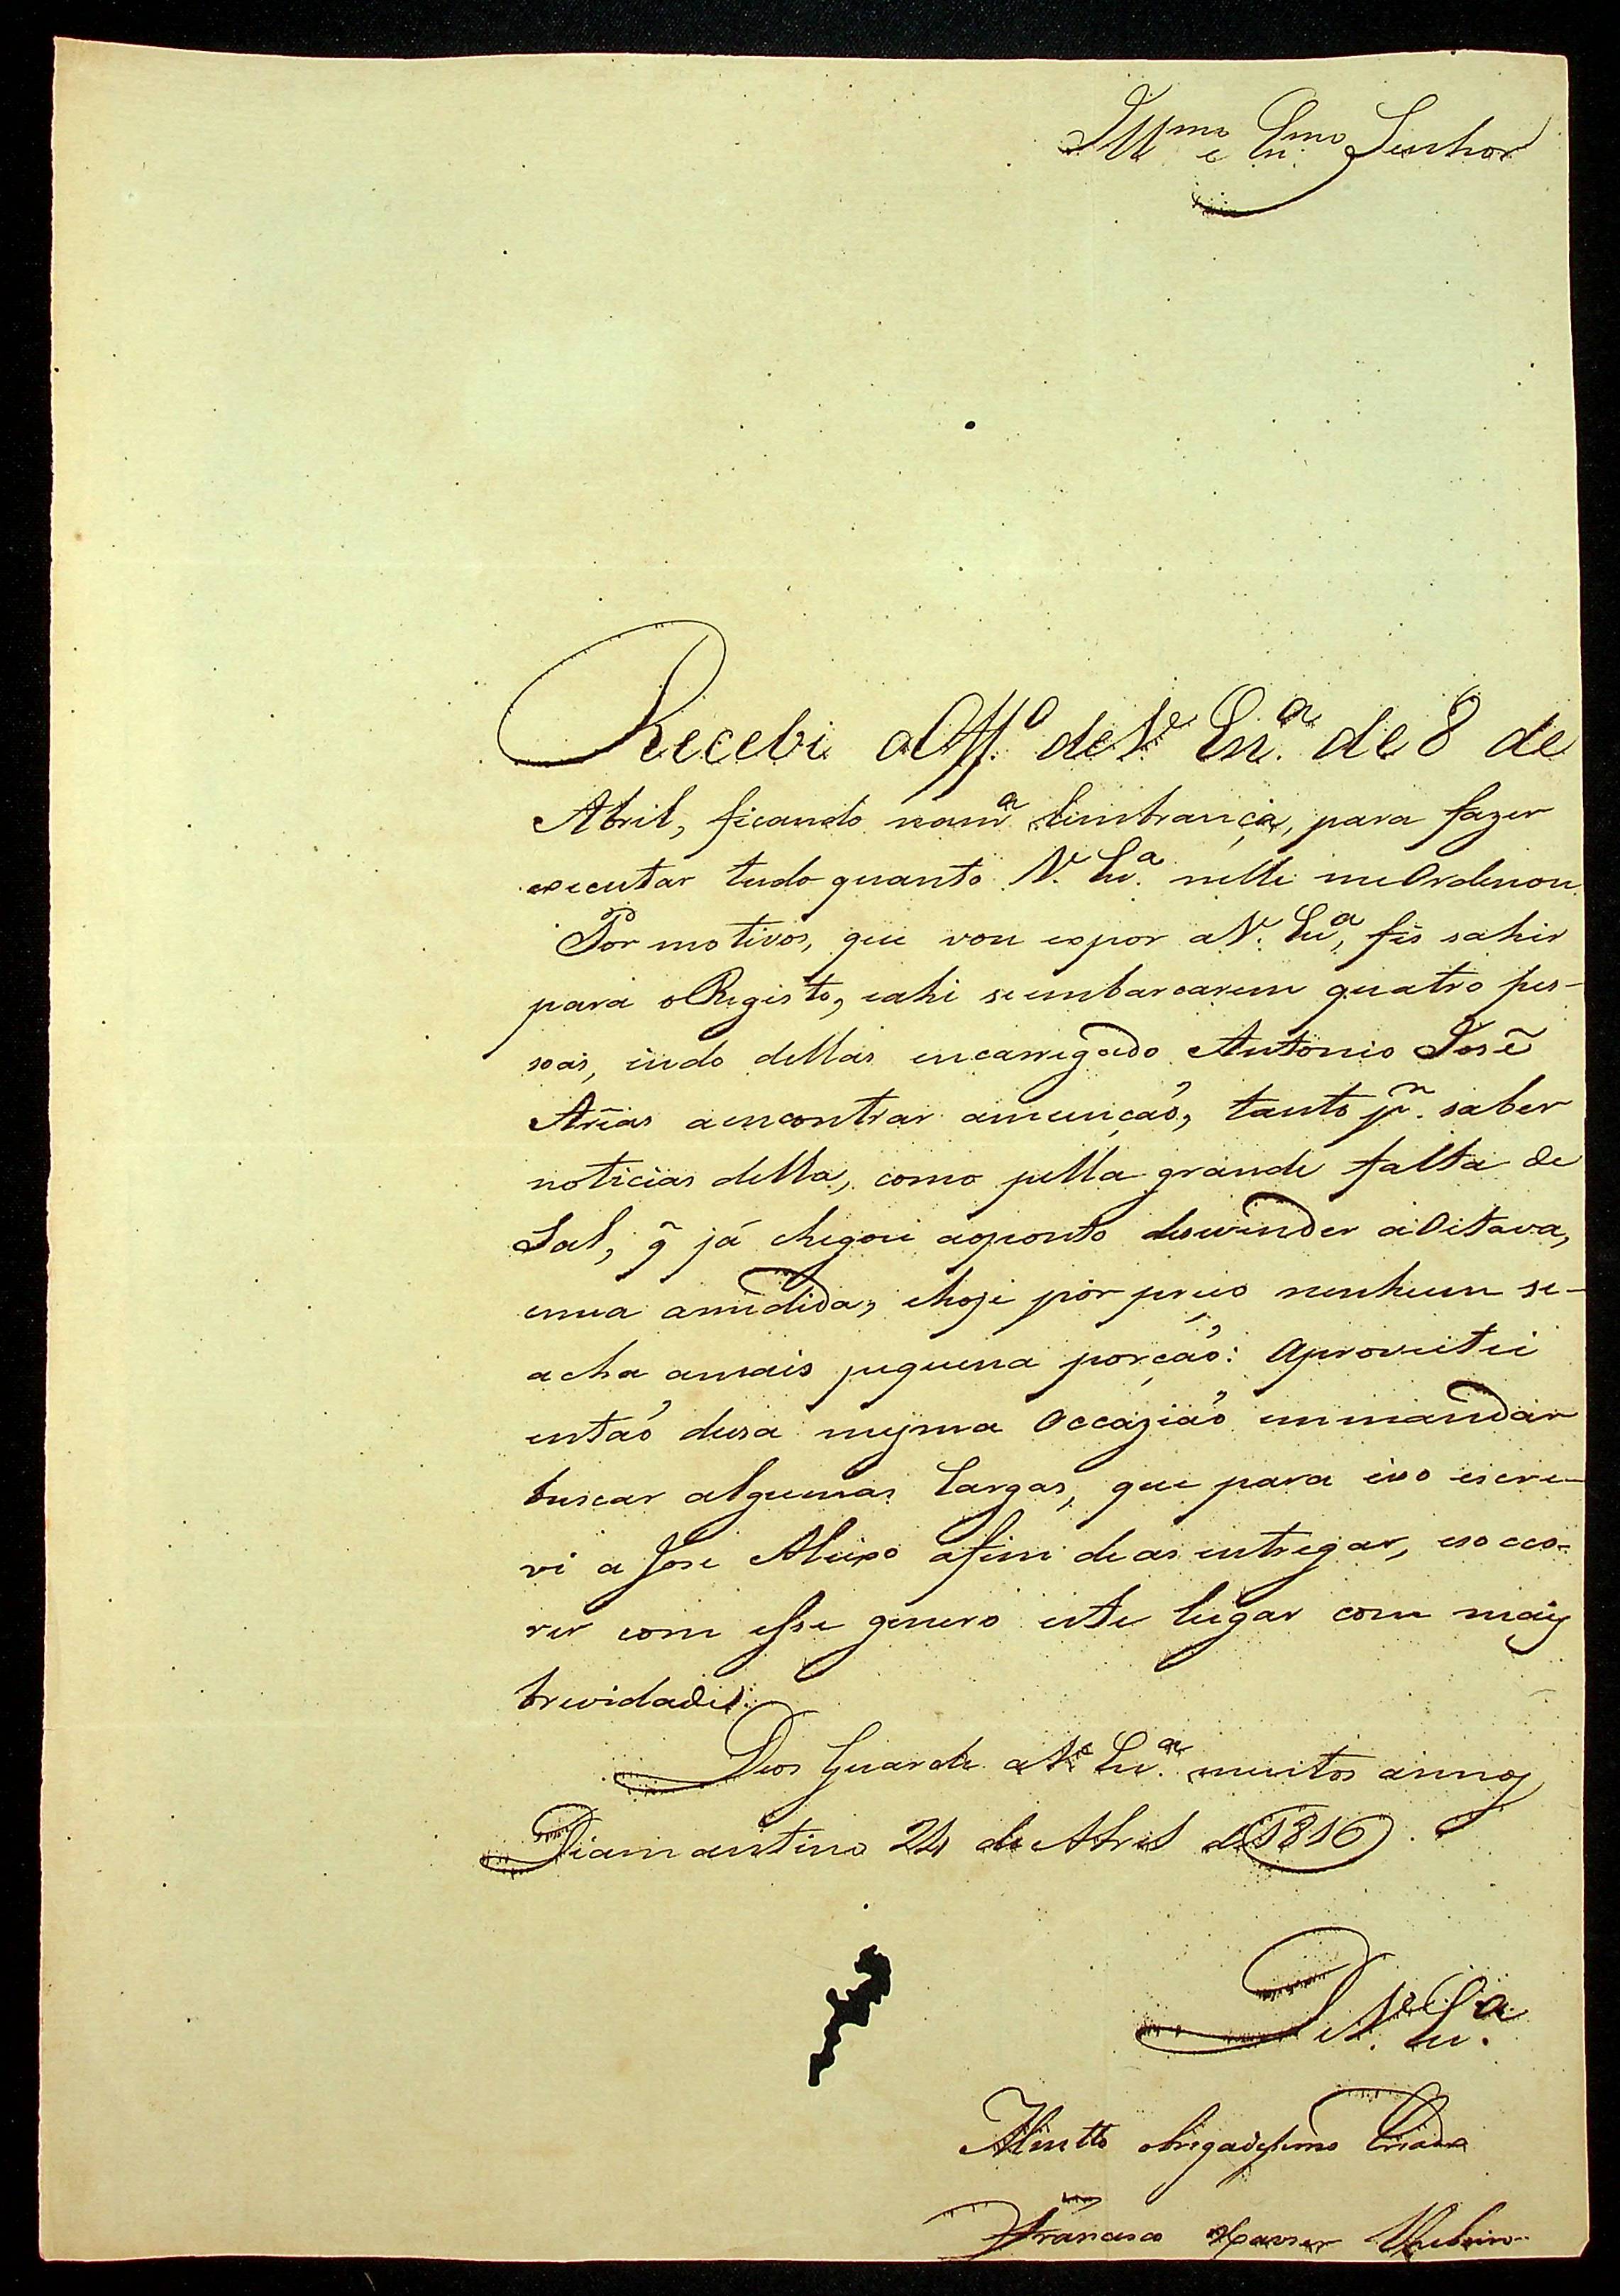 Illmo e Exmo Senhor
Recebi o Off.º de V.ª Exa. de 8 de
Abril, ficando na m.ª lembrança, para fazer
executar tudo quanto V. Exa. nelle me Ordenou.
Por motivos, que vou expor a V. Exa, fis sahir
para o Registo, e ahi se embarcarem quatro pes-
soas, indo dellas encarregado Antonio José
Arias a encontrar a munção, tanto pª. saber
noticias della, como pella grande falta de
Sal, q̃ já chegou a ponto de se vender a Oitava,
e mea a medida, e hoje por preço nenhum se-
acha a mais piquena porção: Aproveitei
então dessa mesma Occazião em mandar
buscar algumas Cargas, que para isso escre-
vi a Jose Aleixo afim de as entregar, e socco-
rer com esse genero este lugar com mais
brevidade.
Deos Guarde a V.ª Exa. muitos annos
Diamantino 24 de Abril de 1816.
De V.ª Exa.
Muitto obrigadissimo Criado
Francisco Xavier Ribeiro